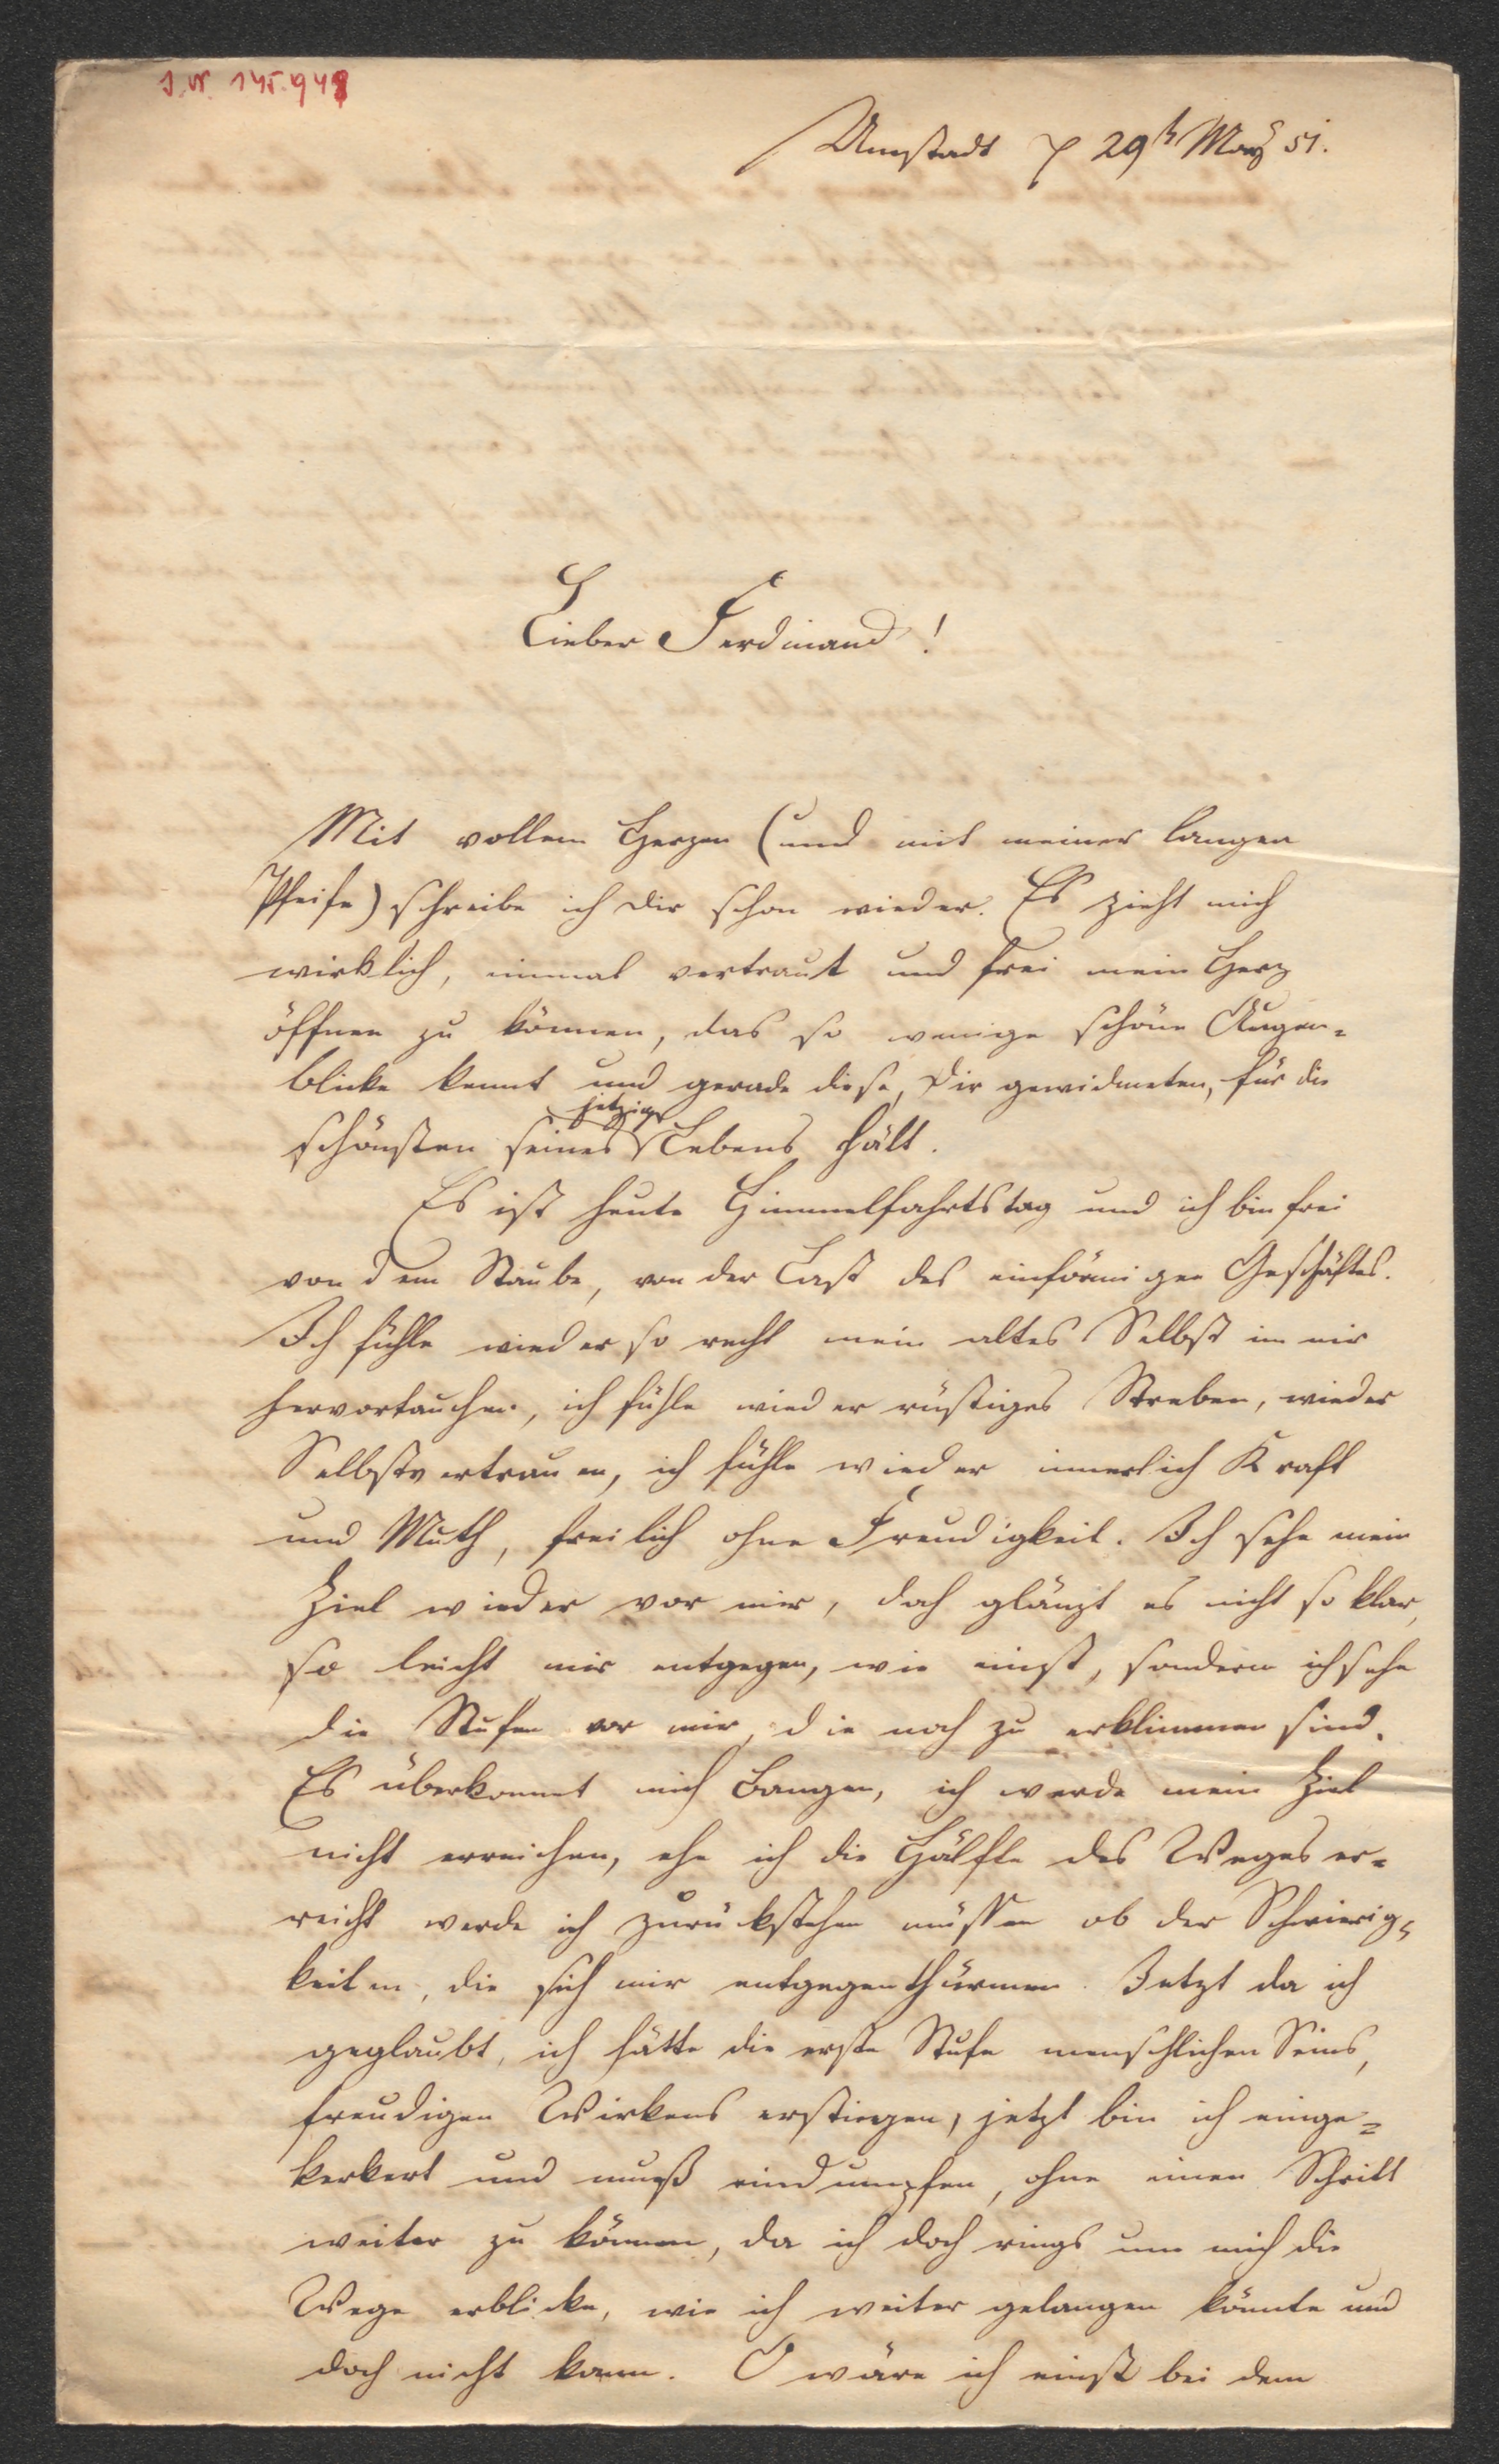 J.N. 145.948
Umstadt p 29t May 51.
Lieber Ferdinand!
Mit vollem Herzen (und mit meiner langen
Pfeife) schreibe ich dir schon wieder. Es zieht mich
wirklich, einmal vertraut und frei mein Herz
öffnen zu können, das so wenige schöne Augen-
blicke kennt und gerade diese, Dir gewidmeten, für die
jetzigen
schönsten seines Lebens hält.
Es ist heute Himmelfahrtstag und ich bin frei
von dem Staube, von der Last des einförmigen Geschäftes.
Ich fühle wieder so recht mein altes Selbst in mir
hervortauchen, ich fühle wieder rüstiges Streben, wieder
Selbstvertrauen, ich fühle wieder innerlich Kraft
und Muth, freilich ohne Freudigkeit. Ich sehe mein
Ziel wieder vor mir, doch glänzt es nicht so klar,
so leicht mir entgegen, wie einst, sondern ich sehe
die Stufen vor mir, die noch zu erklimmen sind.
Es überkommt mich Bangen, ich werde mein Ziel
nicht erreichen, ehe ich die Hälfte des Weges er-
reicht werde ich zurückstehen müssen ob der Schwierig-
keiten, die sich mir entgegenthürmen. Jetzt da ich
geglaubt, ich hätte die erste Stufe menschlichen Seins,
freudigen Wirkens erstiegen, jetzt bin ich einge-
kerkert und muß eindumpfen, ohne einen Schritt
weiter zu können, da ich doch rings um mich die
Wege erblicke, wie ich weiter gelangen könnte und
doch nicht kann. O wäre ich einst bei dem